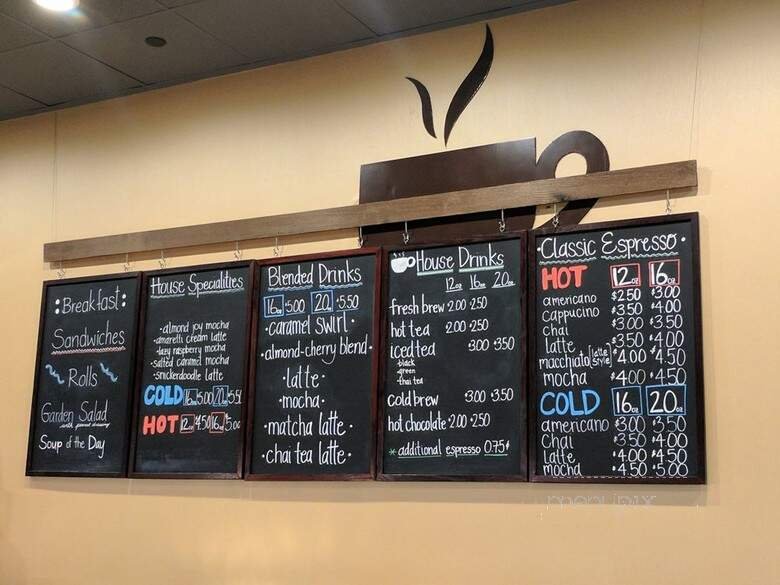 Breakfast
Sandwiches
Rolls
Garden Salad
Soup of the Day
House Specialties
•almond joy mocha
•amaretti cream latte
•lazy raspberry mocha
•salted caramel mocha
•snickerdoodle latte
COLD 16oz $5.00 20oz $5.50
HOT 12oz $4.50 16oz $5.00
Blended Drinks
16oz $5.00 20oz $5.50
•caramel swirl•
•almond-cherry blend•
•latte•
•mocha•
•matcha latte•
•chai tea latte•
House Drinks
12oz 16oz 20oz
fresh brew $2.00 $2.50
hot tea $2.00 $2.50
iced tea $3.00 $3.50
•black
•green
•thai tea
cold brew $3.00 $3.50
hot chocolate $2.00 $2.50
*additional espresso 0.75¢
•Classic Espresso•
HOT 12oz 16oz
americano $2.50 $3.00
cappucino $3.50 $4.00
chai $3.00 $3.50
latte $3.50 $4.00
macchiato [latte style] $4.00 $4.50
mocha $4.00 $4.50
COLD 16oz 20oz
americano $3.00 $3.50
Chai $3.50 $4.00
Latte $4.00 $4.50
mocha $4.50 $5.00
menupix